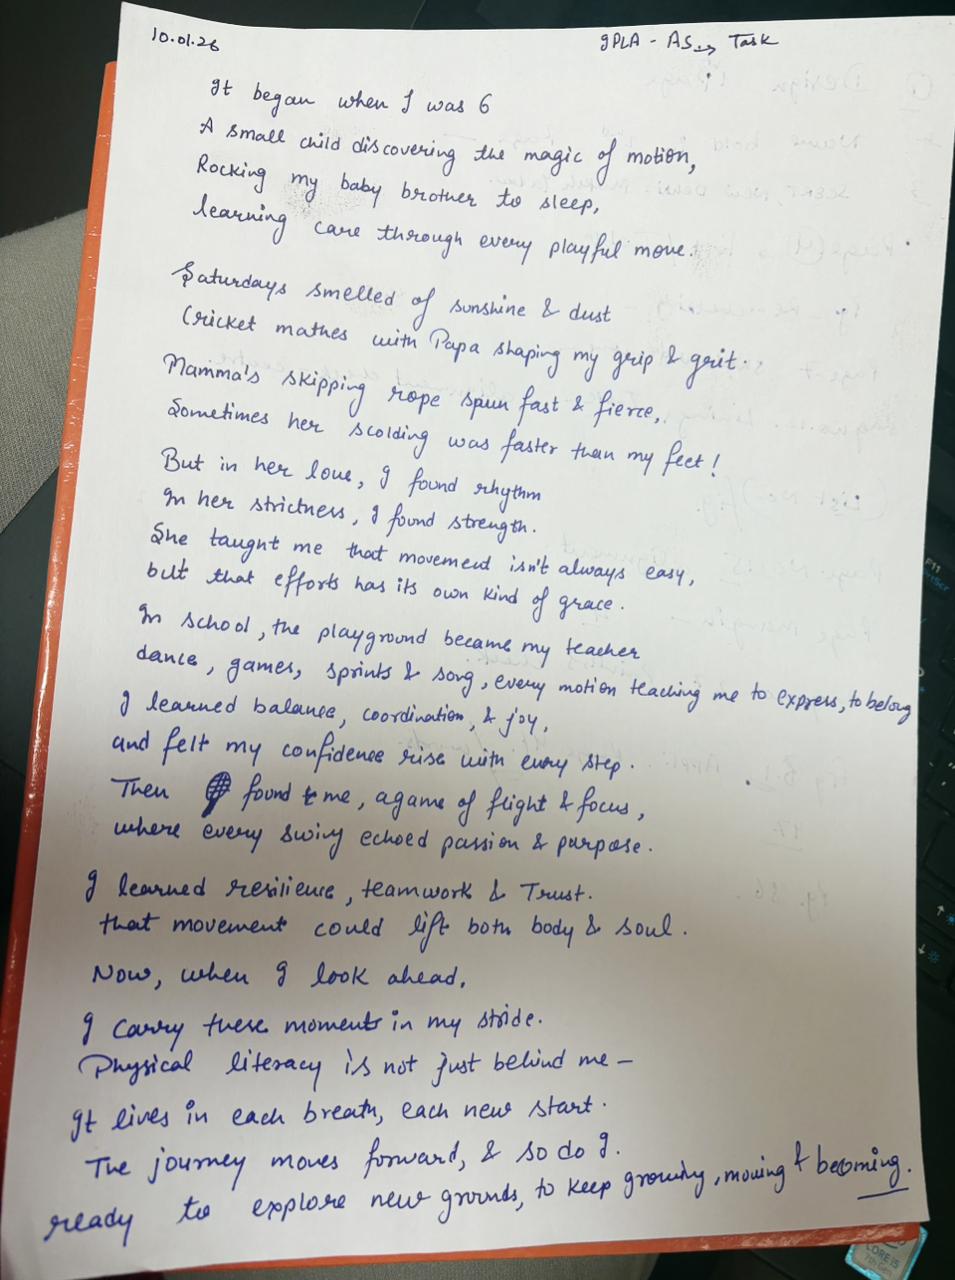 10.01.26
gPLA - AS → Task
It began when I was 6
A small child discovering the magic of motion,
Rocking my baby brother to sleep,
learning care through every playful move.
Saturdays smelled of sunshine & dust
Cricket mathes with Papa shaping my grip & grit.
Mamma's skipping rope spun fast & fierce,
Sometimes her scolding was faster than my feet!
But in her love, I found rhythm
In her strictness, I found strength.
She taught me that movement isn't always easy,
but that efforts has its own kind of grace.
In school, the playground became my teacher
dance, games, sprints & song, every motion teaching me to express, to belong
I learned balance, coordination, & joy,
and felt my confidence rise with every step.
Then found me, a game of flight & focus,
where every swing echoed passion & purpose.
I learned resilience, teamwork & Trust.
that movement could lift both body & soul.
Now, when I look ahead,
I carry these moments in my stride.
Physical literacy is not just behind me –
It lives in each breath, each new start.
The journey moves forward, & so do I.
ready to explore new grounds, to keep growing, moving & becoming.
F11
PrtScr
CORE i5